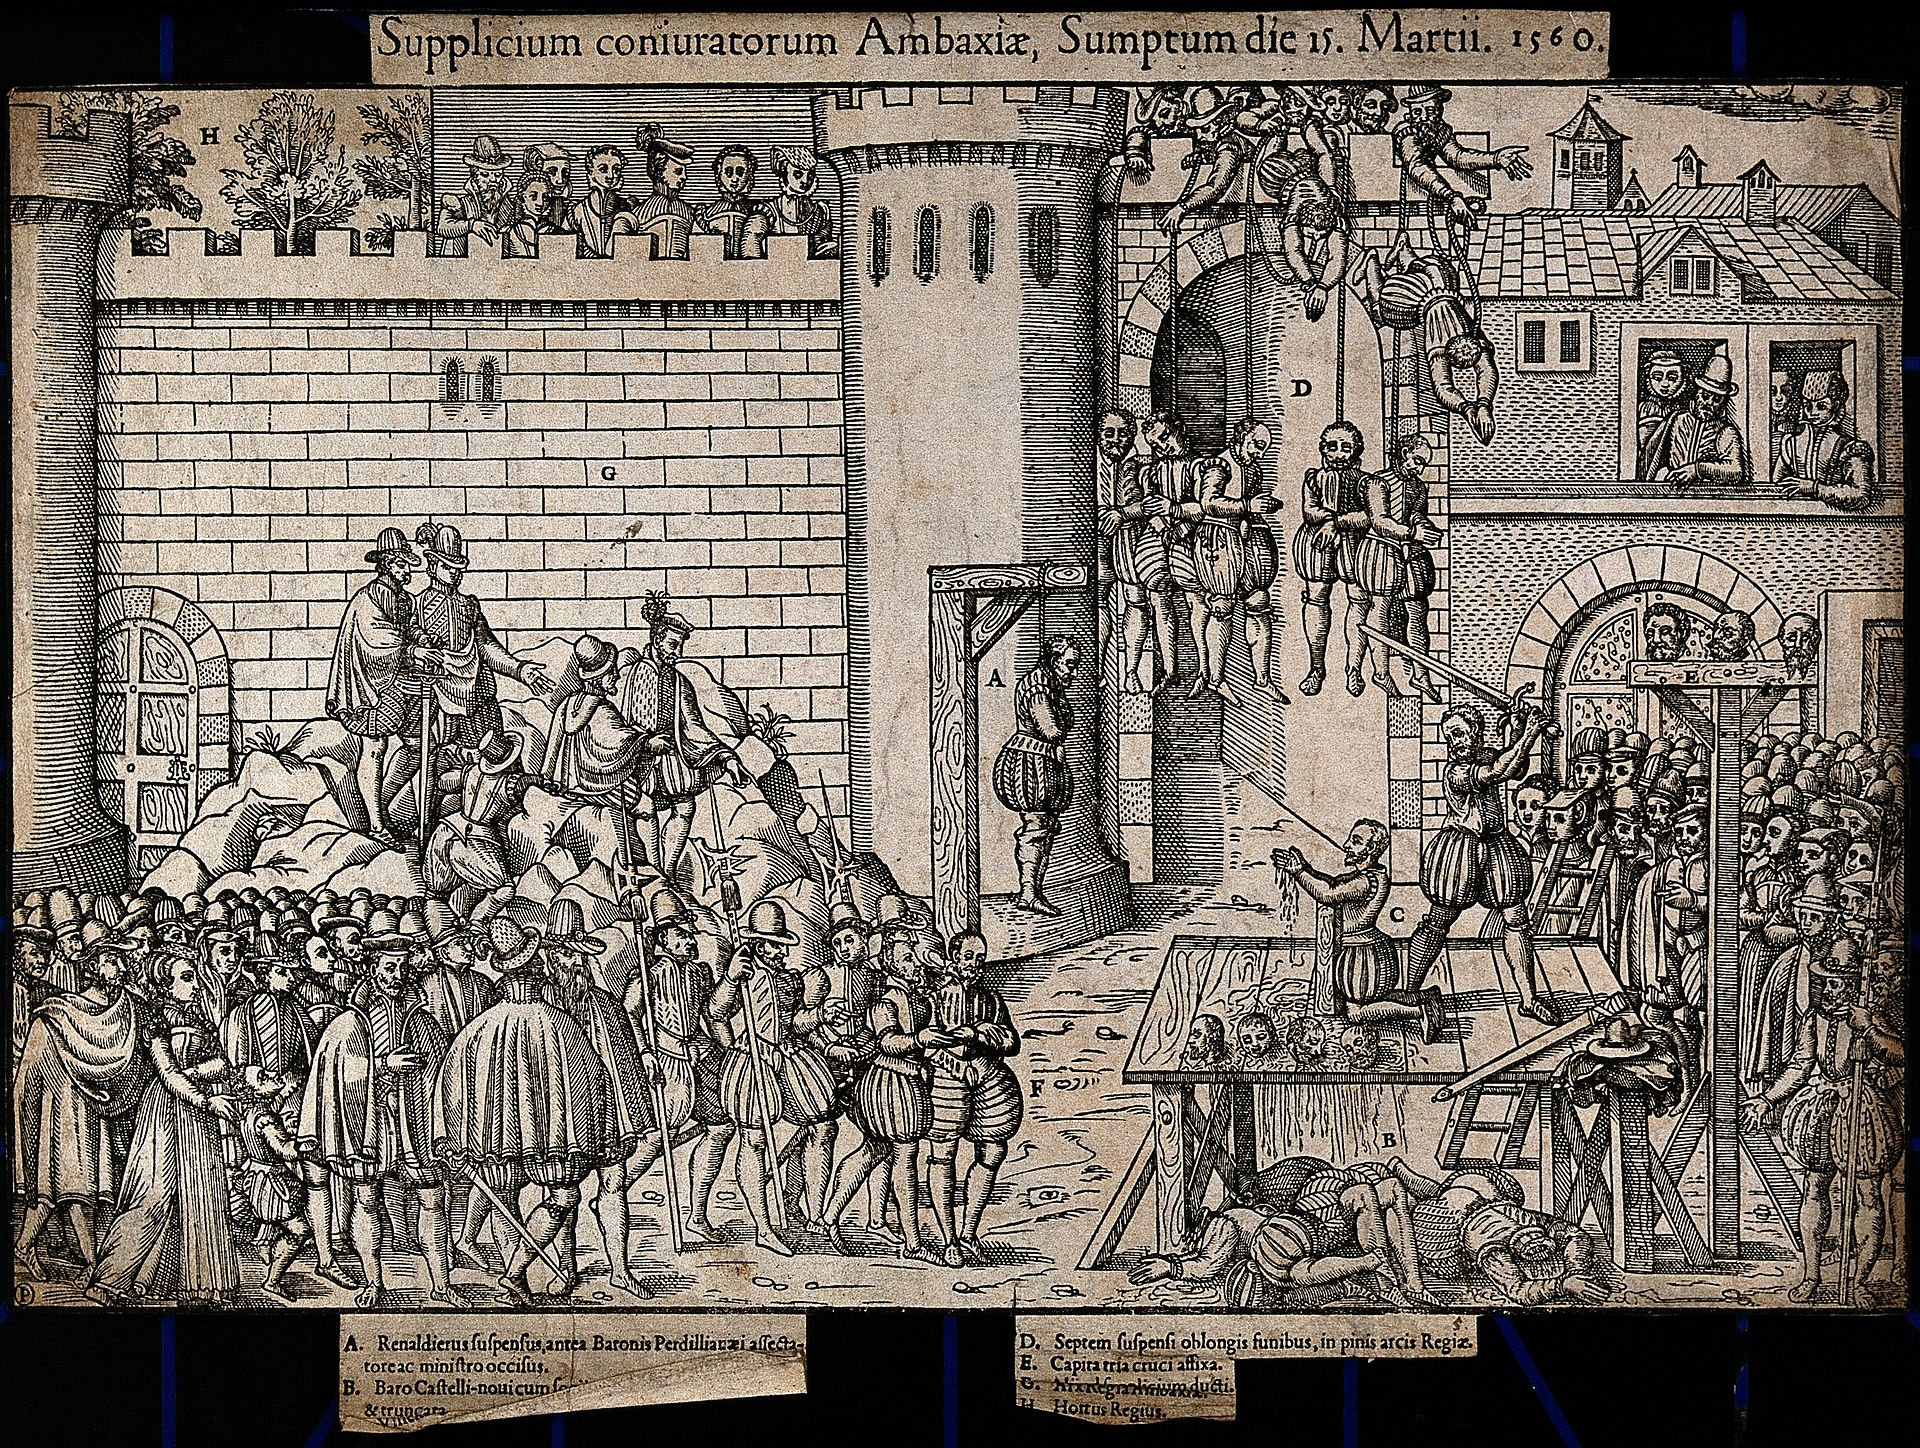 Supplicium coniuratorum Ambaxiæ, Sumptum die 15. Martii. 1560.
H
G
D
A
E
C
F
B
P
A. Renaldierus suspensus, antea Baronis Perdillianæi assecta-
tore ac ministro occisus.
B. Baro Castelli-novi cum
& truncata
D. Septem suspensi oblongis funibus, in pinis arcis Regiæ.
E. Capita tria cruci affixa.
G. Arx Regia
ducti.
H. Hortus Regius.